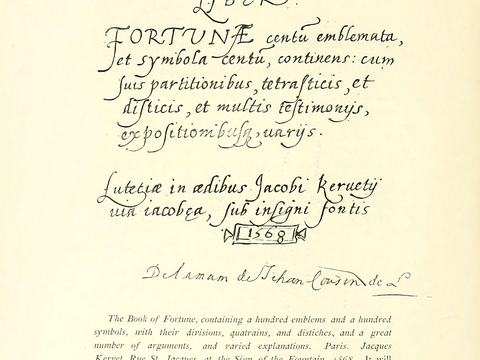 LIBER.
FORTUNÆ centū emblemata,
et symbola centū, continens: cum
suis partitionibus, tetrasticis, et
disticis, et multis testimonijs,
expositionibusq, varijs.
Lutetiæ in ædibus Jacobi Kervetij
via iacobęa, sub insigni fontis
1568
De la main de Jehan Cousin de
The Book of Fortune, containing a hundred emblems and a hundred
symbols, with their divisions, quatrains, and distiches, and a great
number of arguments, and varied explanations. Paris. Jacques
Kervet, Rue St. Jacques, at the Sign of the Fountain, 1568. It will